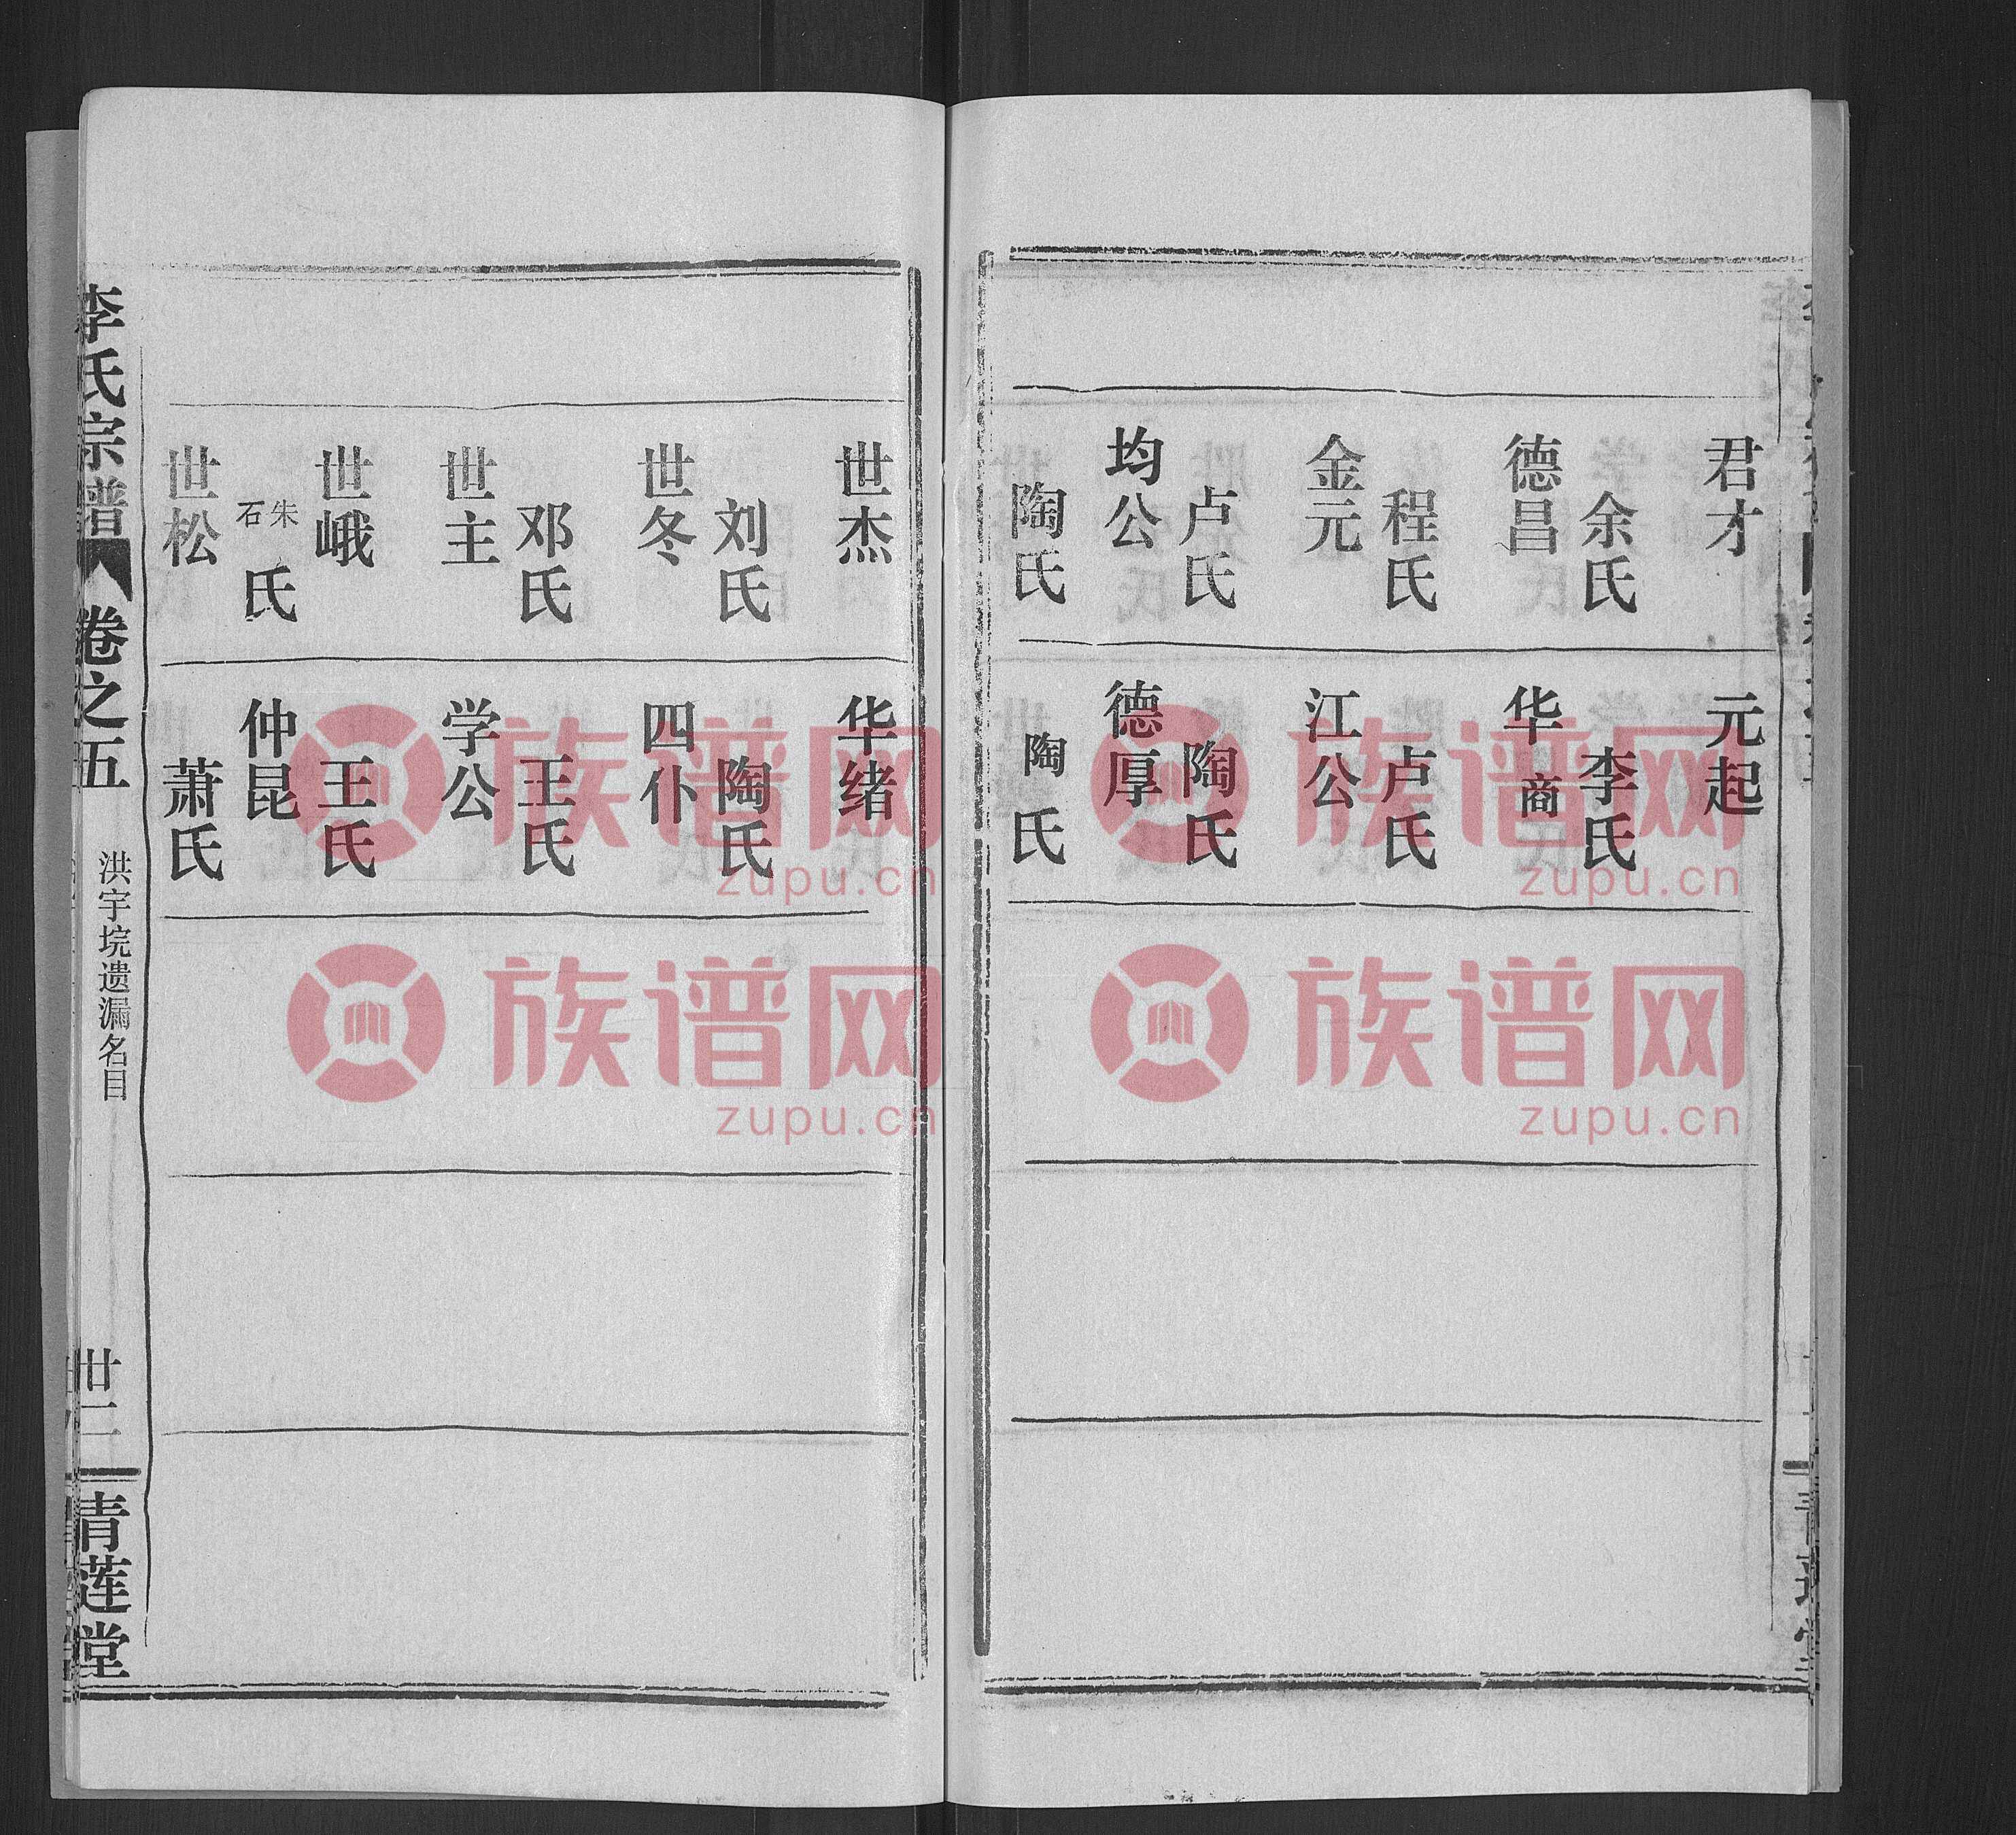 君才
余氏
德昌
程氏
金元
卢氏
均公
陶氏
元起
李氏
华商
卢氏
江公
陶氏
德厚
陶氏
世杰
刘氏
世冬
邓氏
世主
世峨
朱石氏
世松
华绪
陶氏
四仆
王氏
学公
王氏
仲昆
萧氏
李氏宗谱
卷之五
洪宇垸遗漏名目
卅二
青莲堂
族谱网
zupu.cn
族谱网
zupu.cn
族谱网
zupu.cn
族谱网
zupu.cn